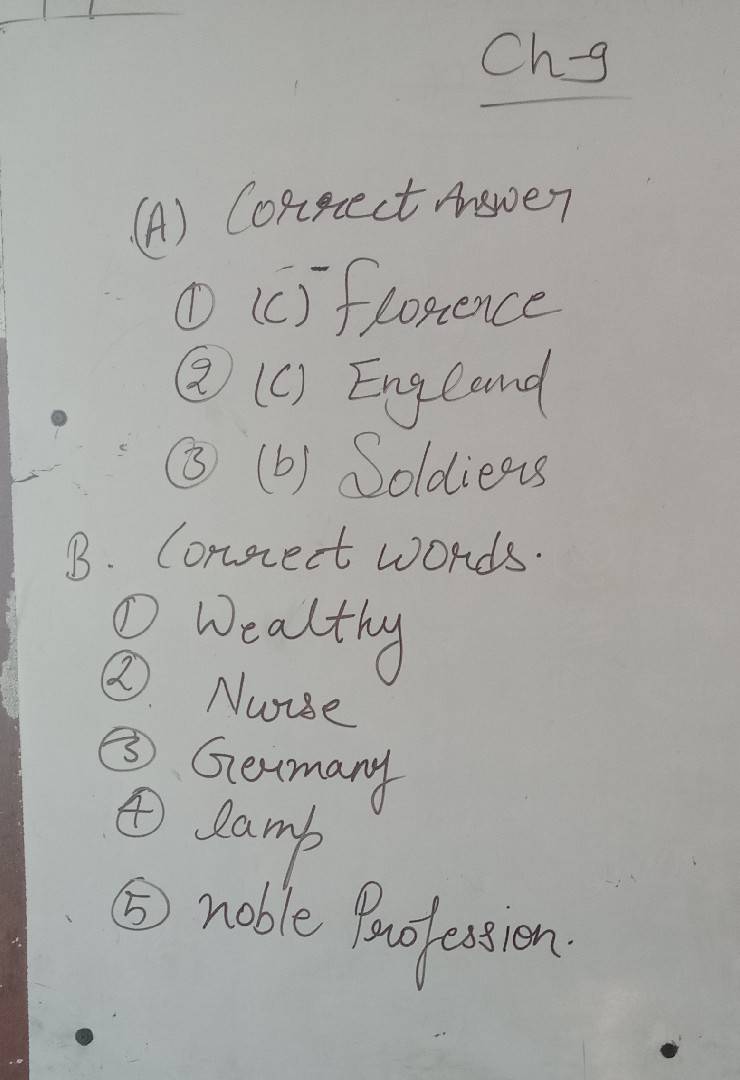 Ch-9
(A) Correct Answer
① (C) Florence
② (C) England
③ (b) Soldiers
B. Correct words.
① Wealthy
② Nurse
③ Germany
④ lamp
⑤ noble Profession.